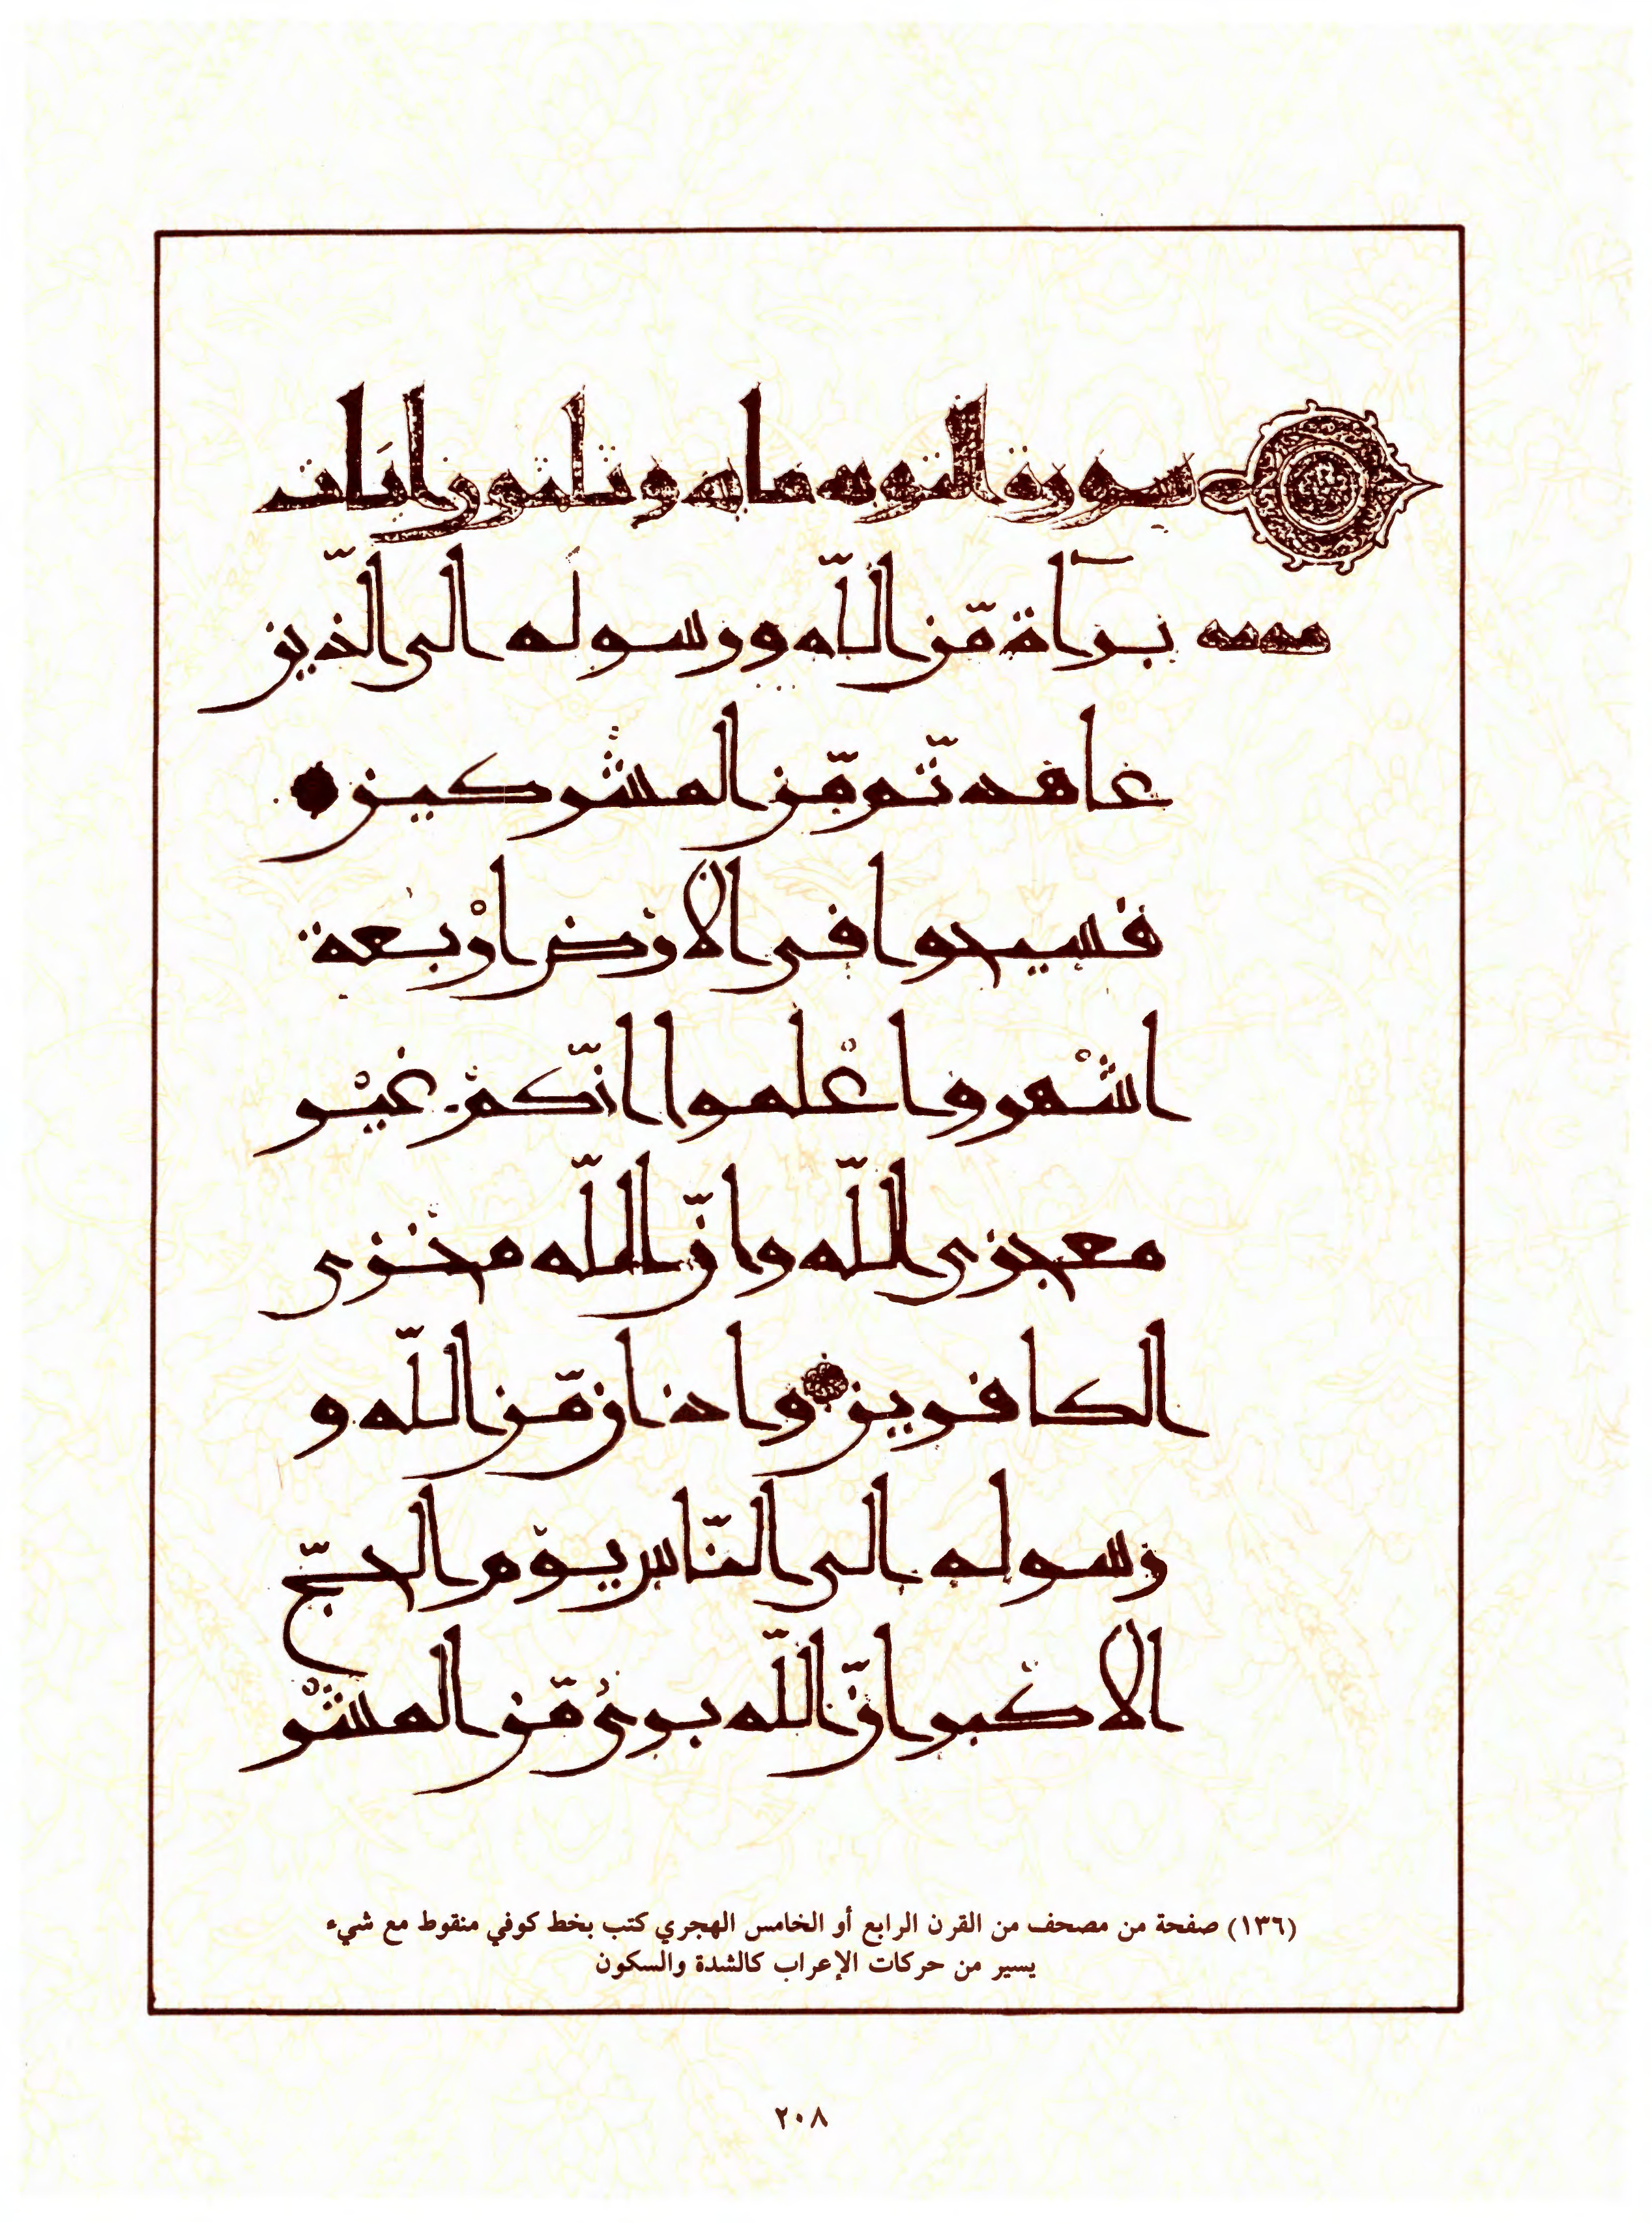 سورة التوبه مايه وثلثون ايات
برآاة مّن اللّه ورسوله الى الّذين
عاهدتّم مّن المشركين
فسيحوا فى الارض ارْبعة
اشْهر واعْلموا انّكمْ غيْر
معجزى اللّه وانّ اللّه مخزى
الكافرين واذان مّن اللّه و
رسوله الى النّاس يوْم الحجّ
الاكْبر انّ اللّه برىٌ مّن المشْر
(١٣٦) صفحة من مصحف من القرن الرابع أو الخامس الهجري كتب بخط كوفي منقوط مع شيء
يسير من حركات الإعراب كالشدة والسكون
٢٠٨